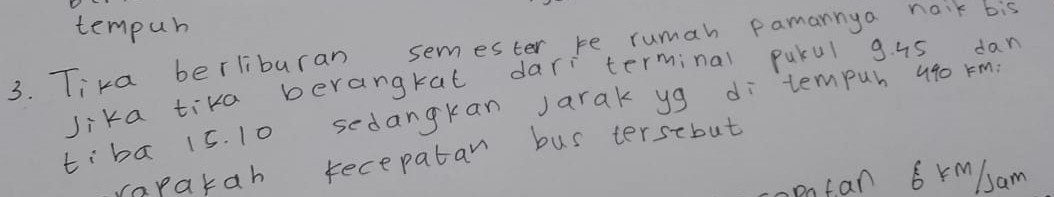 tempuh
3. Tika berliburan semester ke rumah pamannya naik bis
Jika tika berangkat dari terminal pukul 9.45 dan
tiba 15.10 sedangkan Jarak yg di tempuh 490 km.
rapakah kecepatan bus tersebut
6 km/jam